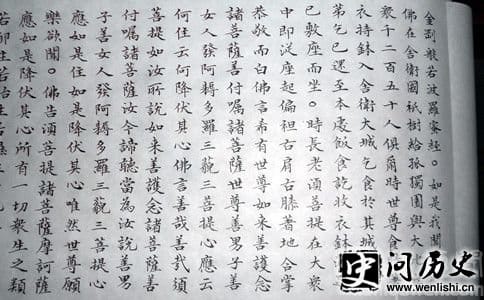 金剛般若波羅蜜經。如是我聞
佛在舍衛國祇樹給孤獨園與大
衆千二百五十人俱爾時世尊食
衣持鉢入舍衛大城乞食於其城
第乞已還至本處飯食訖收衣鉢
已敷座而坐。時長老須菩提在大衆
中即從座起偏袒右肩右膝著地合掌
恭敬而白佛言希有世尊如來善護念
諸菩薩善付囑諸菩薩世尊善男子善
女人發阿耨多羅三藐三菩提心應云
何住云何降伏其心佛言善哉善哉須
菩提如汝所說如來善護念諸菩薩善
付囑諸菩薩汝今諦聽當為汝說善男
子善女人發阿耨多羅三藐三菩提心
應如是住如是降伏其心唯然世尊願
樂欲聞。佛告須菩提諸菩薩摩訶薩
應如是降伏其心所有一切衆生之類
若卵生若
问历史
www.wenlishi.cn